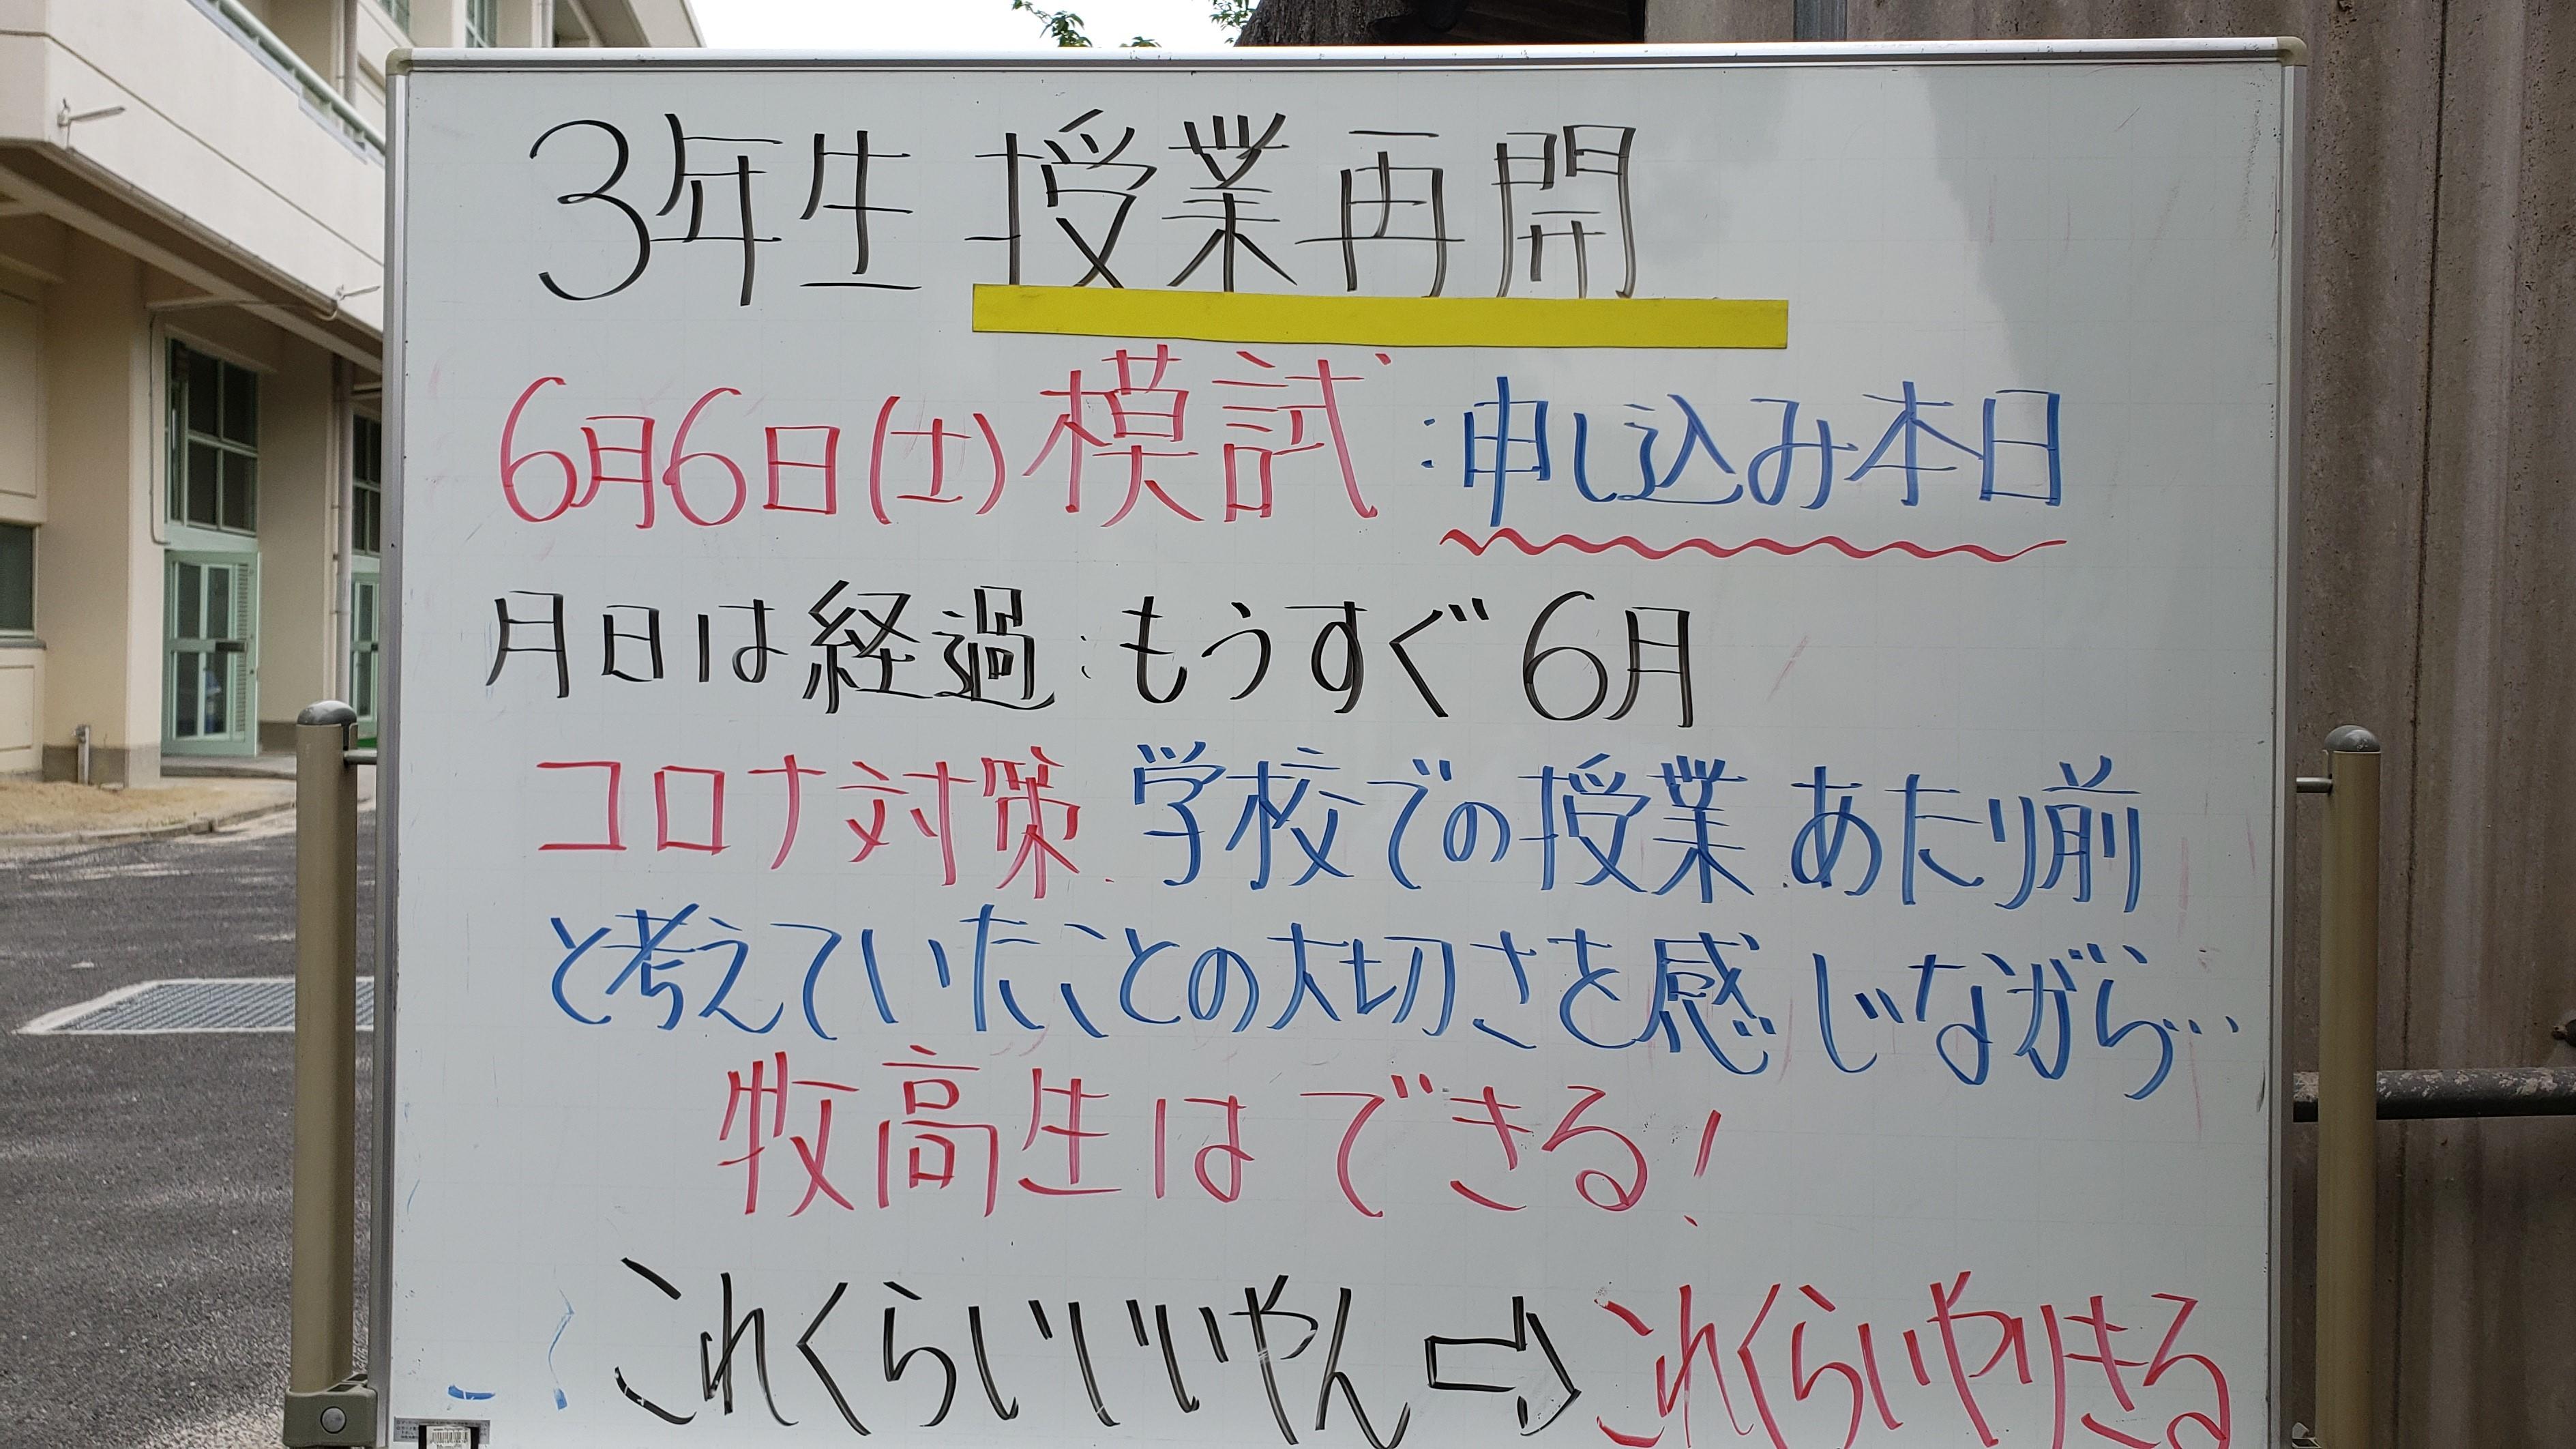 3年生 授業再開
6月6日(土)模試:申し込み本日
月日は経過:もうすぐ6月
コロナ対策 学校での授業 あたり前
と考えていたことの大切さを感じながら…
牧高生はできる!
これくらいいいやん⇨これくらいやりきる